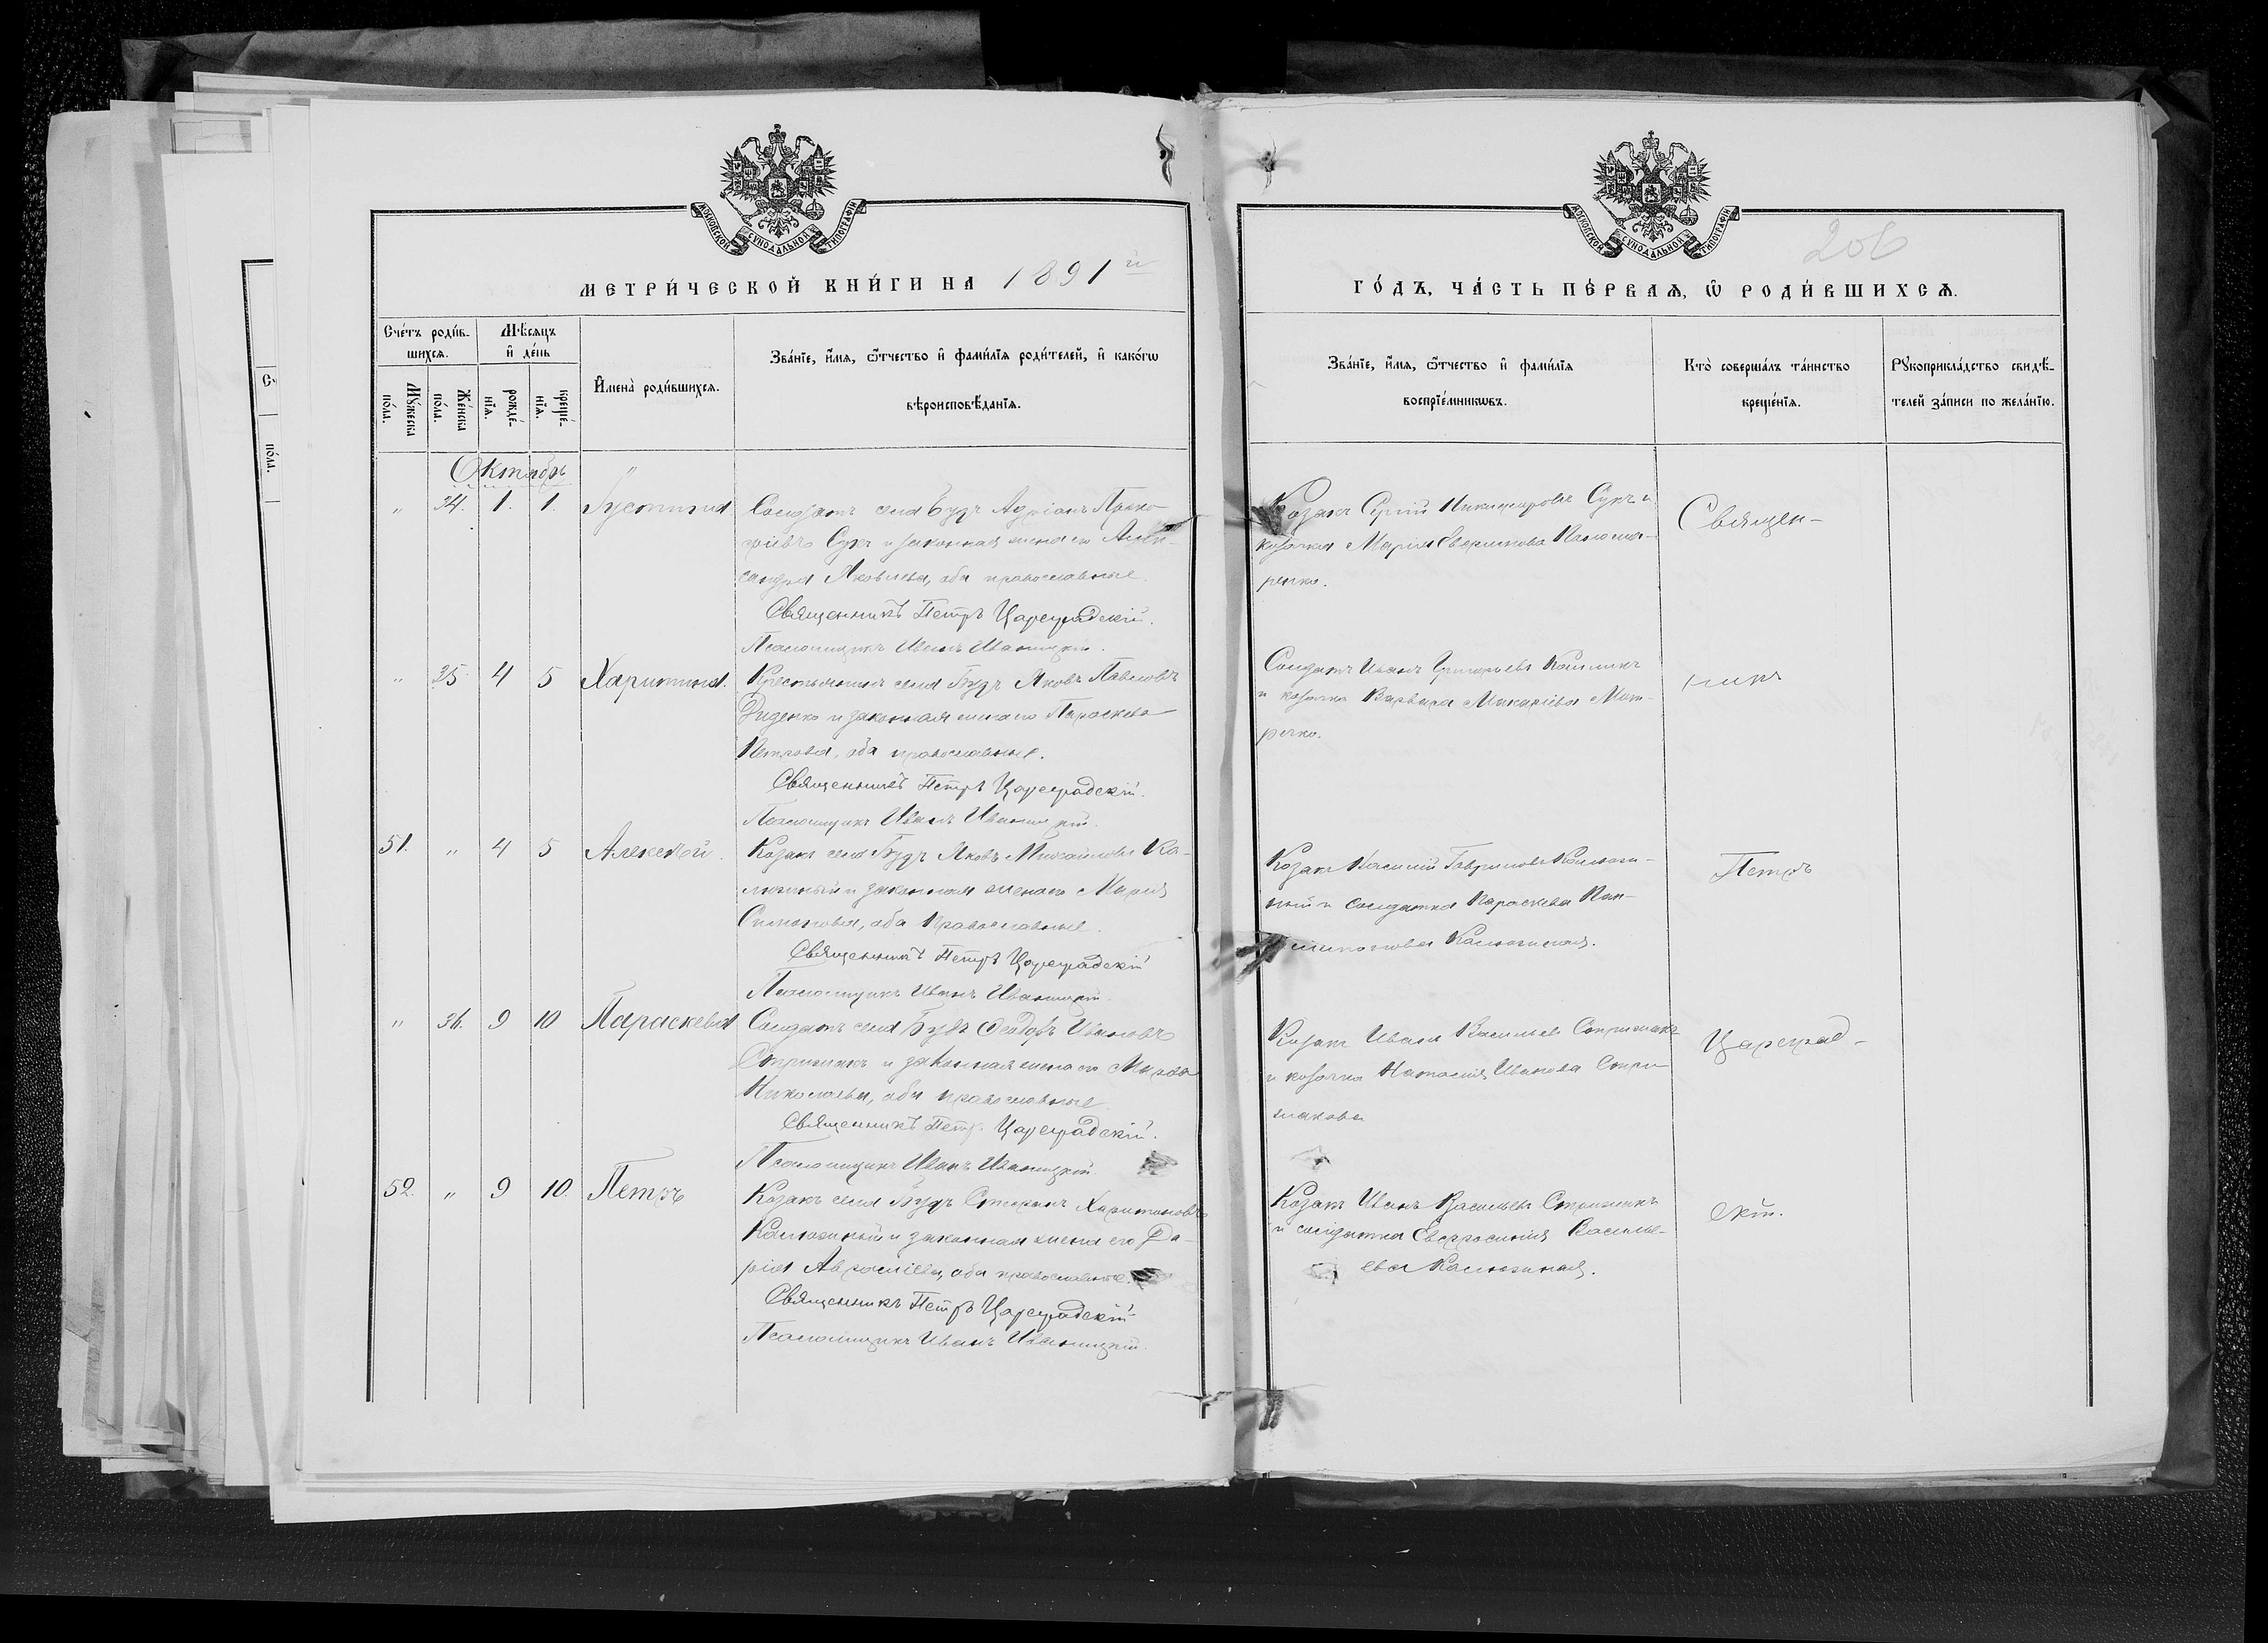 МОСКОВСКОЙ СѴНОДАЛЬНОЙ ТИПОГРАФІИ
МЕТРИ́ЧЕСКОЙ КНИ́ГИ НА 1891й
Сче́тъ роди́в-
шихсѧ.
Мѣ́сѧцъ
и҆ де́нь
Мꙋ́жеска
по́ла.
Же́нска
по́ла.
рожде́-
нїѧ.
креще́-
нїѧ.
И҆мена̀ роди́вшихсѧ.
Зва́нїе, и҆́мѧ, ѻ҆́тчество и҆ фами́лїѧ роди́телей, и҆ како́гѡ
вѣроисповѣ́данїѧ.
Октябрь
" 34. 1. 1. Іустина
Солдатъ села Будъ Адріанъ Проко-
фіевъ Сукъ и законная жена его Алек-
сандра Яковлева, оба православные.
Священникъ Петръ Цареградскій.
Псаломщикъ Иванъ Иваницкій.
" 35. 4 5 Харитина.
Крестьянинъ села Будъ Яковъ Павловъ
Диденко и законная жена его Параскева
Петрова, оба православные.
Священникъ Петръ Цареградскій.
Псаломщикъ Иванъ Иваницкій.
51. " 4 5 Алексѣй.
Козакъ села Будъ Яковъ Михайловъ Ка-
люжный и законная жена его Марія
Симонова, оба православные.
Священникъ Петръ Цареградскій
Псаломщикъ Иванъ Иваницкій.
" 36. 9 10 Параскева
Солдатъ села Будъ Ѳеодоръ Ивановъ
Стрижакъ и законная жена его Марѳа
Николаева, оба православные
Священникъ Петръ Цареградскій.
Псаломщикъ Иванъ Иваницкій.
52. " 9 10. Петръ
Козакъ села Будъ Стефанъ Харитоновъ
Калюжный и законная жена его Да-
рія, оба православные.
Священникъ Петръ Цареградскій
Псаломщикъ Иванъ Иваницкій.
МОСКОВСКОЙ СѴНОДАЛЬНОЙ ТИПОГРАФІИ
206
ГО́ДЪ, ЧА́СТЬ ПЕ́РВАѦ, Ѡ҆ РОДИ́ВШИХСѦ.
Зва́нїе, и҆́мѧ, ѻ҆́тчество и҆ фами́лїѧ
воспрїе́мникѡвъ.
Кто̀ соверша́лъ та́инство
креще́нїѧ.
Рꙋкоприкла́дство свидѣ́-
телей за́писи по жела́нїю.
Козакъ Сергій Никифоровъ Сукъ и
козачка Марія
ренко.
Священ-
Солдатъ Иванъ Григорьевъ
и козачка Варвара Макаріева
никъ
Козакъ Василій Гавриловъ Калюж-
ный и солдатка Параскева
Калюжная.
Петръ
Козакъ Иванъ Васильевъ Стрижакъ
и козачка Наталія Иванова Стри-
жакова
Цареград-
Козакъ Иванъ Васильевъ Стрижакъ
и солдатка Евфросинія Василь-
ева Калюжная.
скій.